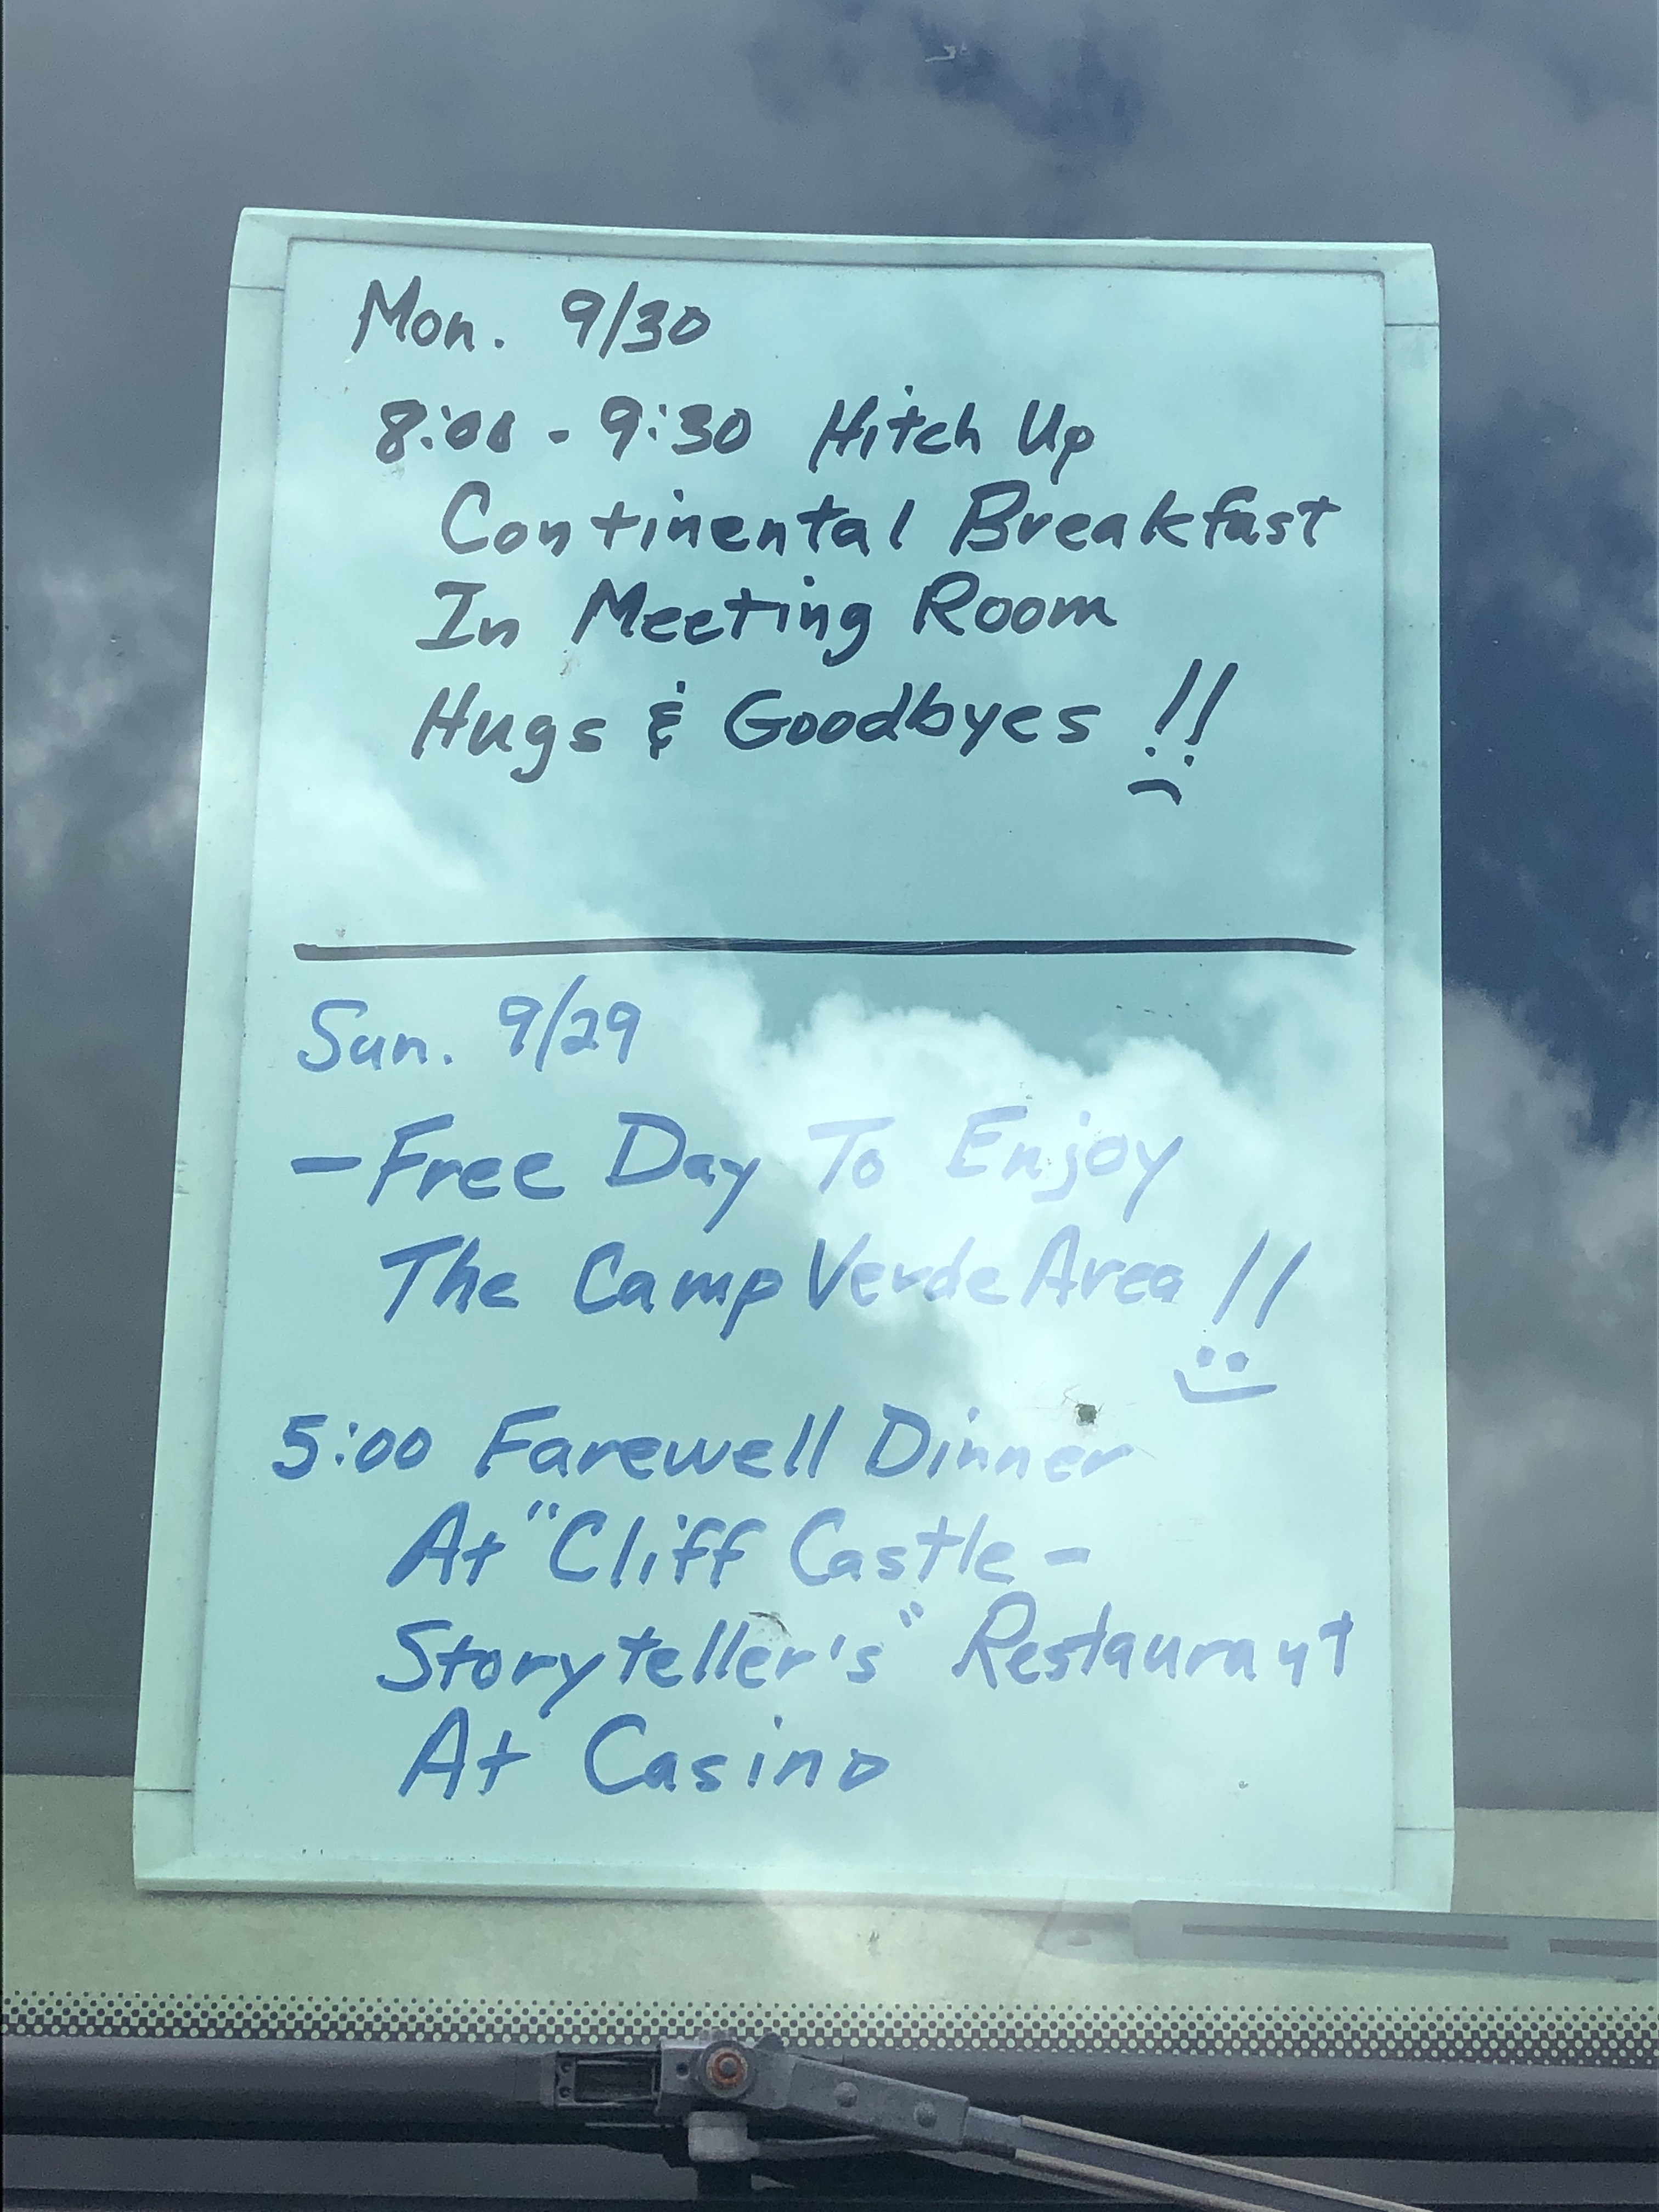 Mon. 9/30
8:00 - 9:30 Hitch Up
Continental Breakfast
In Meeting Room
Hugs & Goodbyes !!
Sun. 9/29
- Free Day To Enjoy
The Camp Verde Area !!
5:00 Farewell Dinner
At "Cliff Castle -
Storyteller's" Restaurant
At Casino